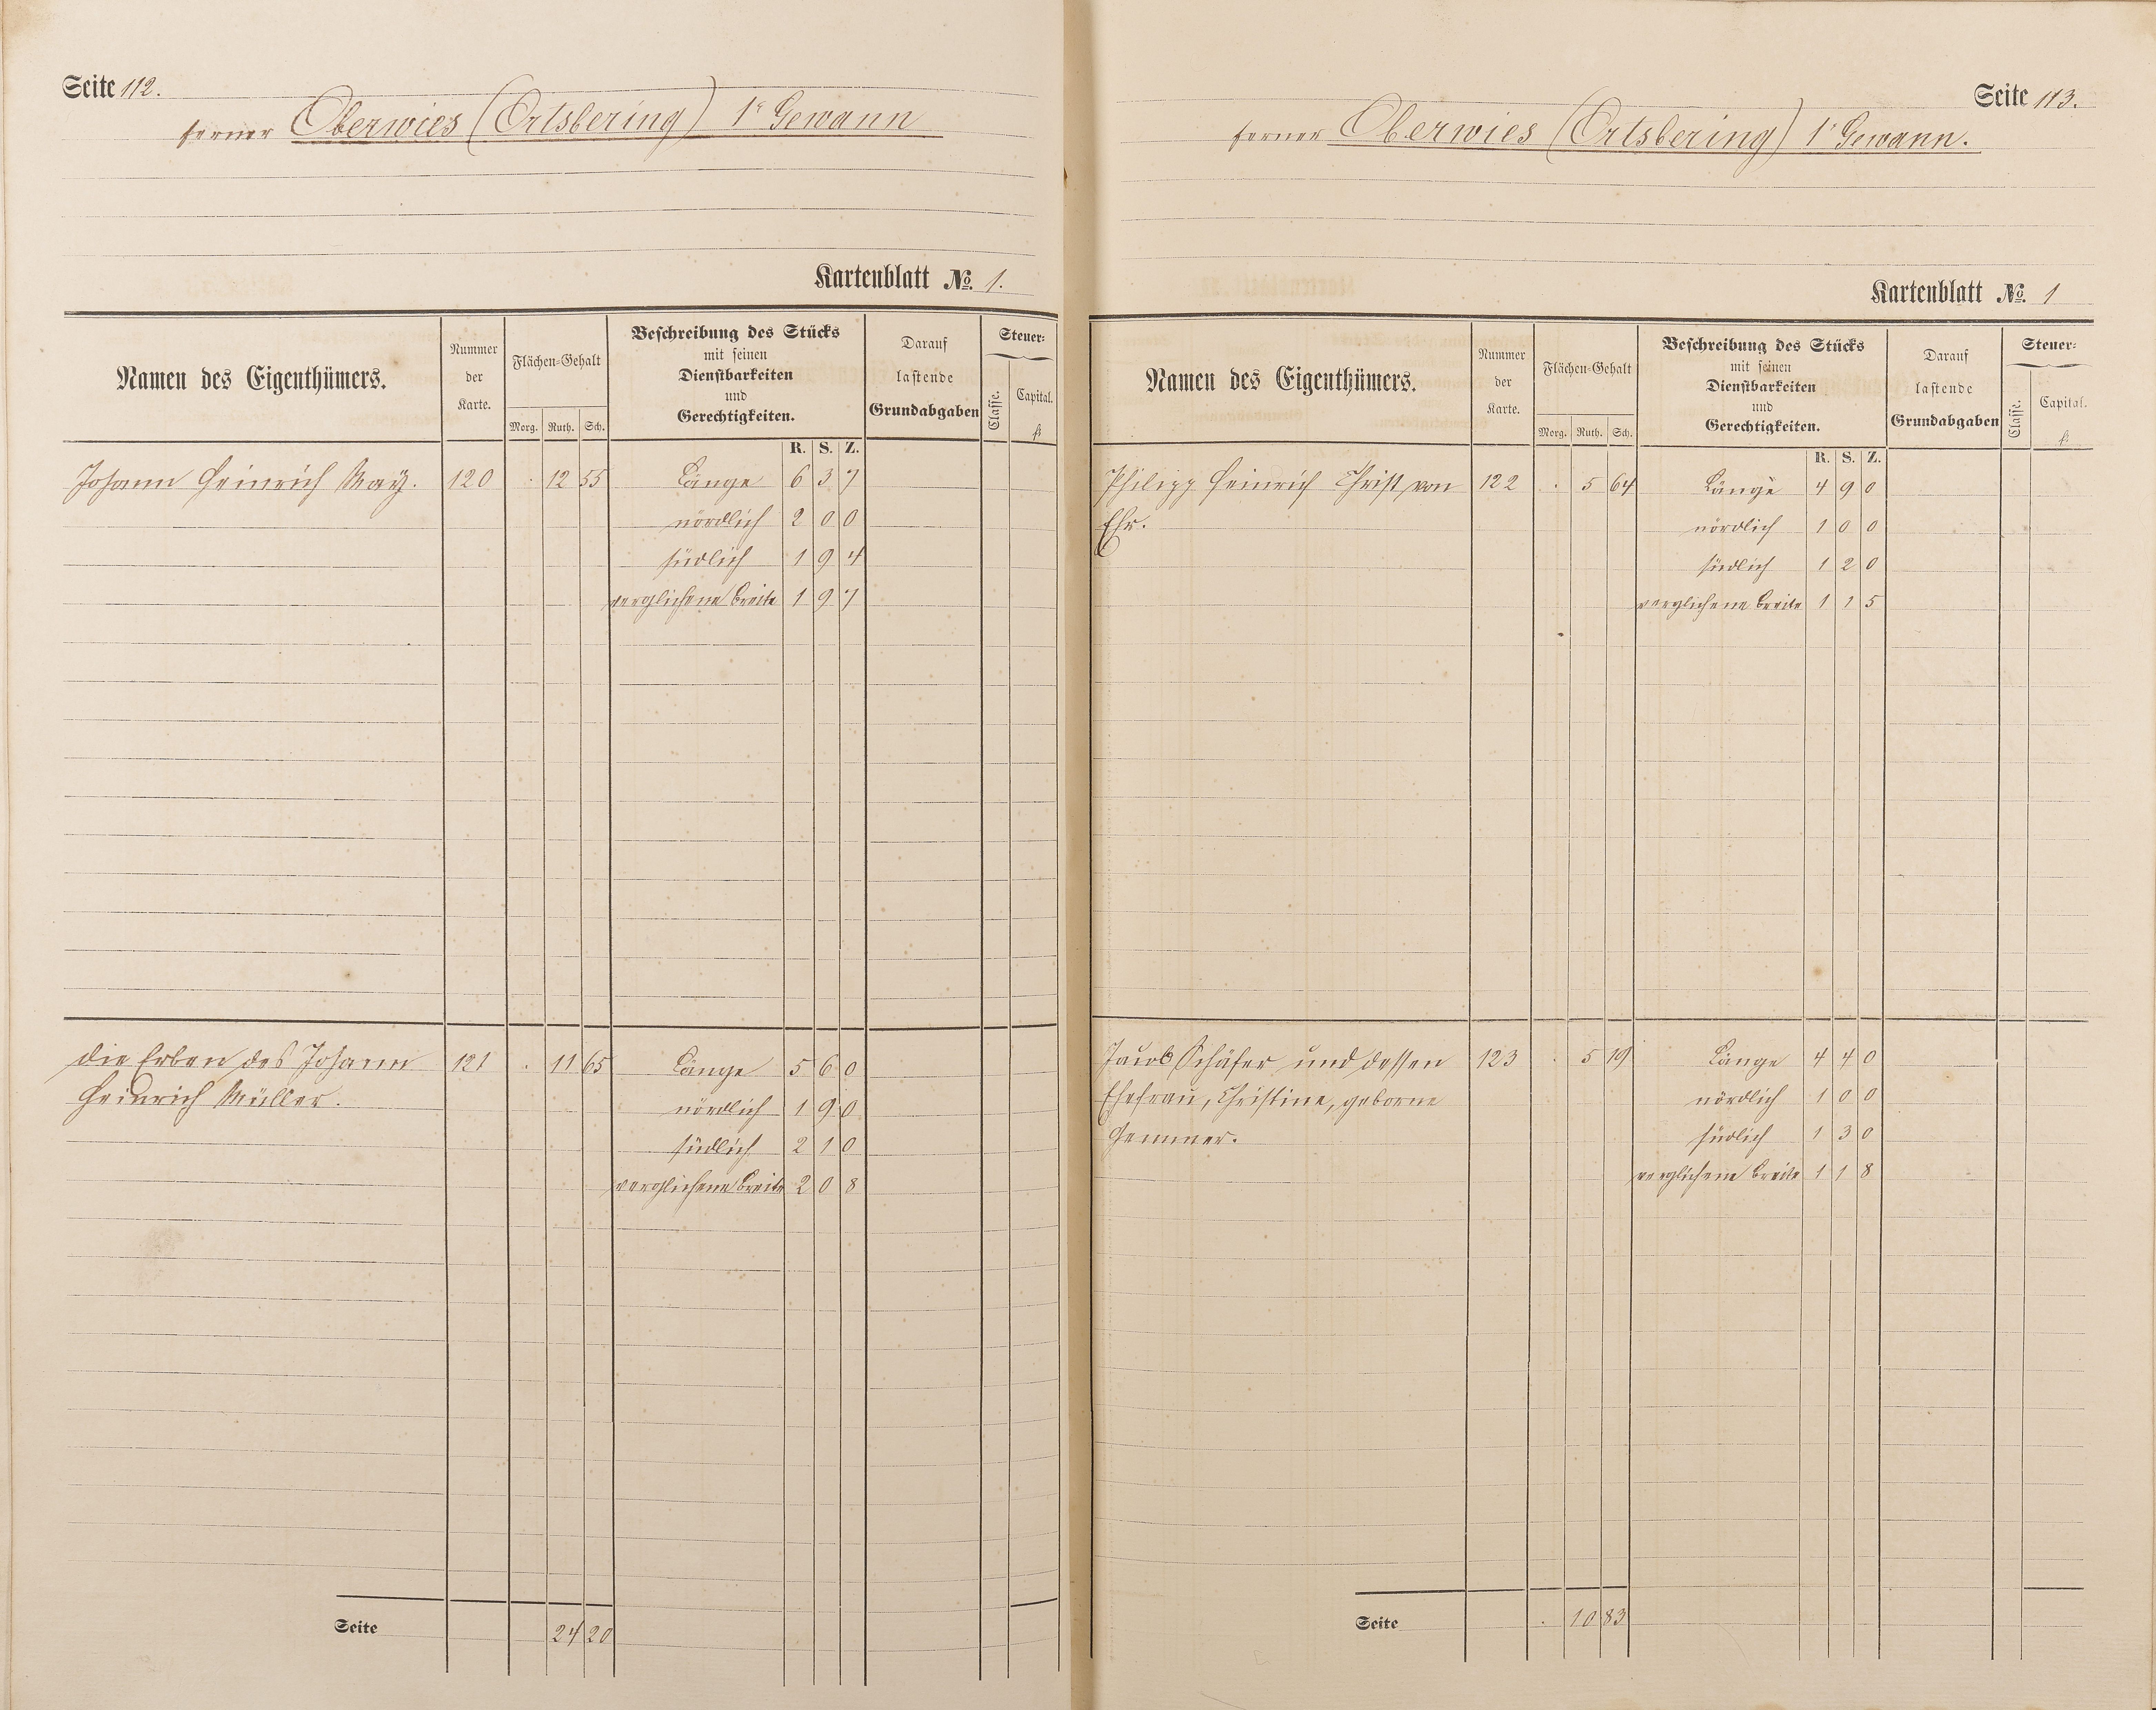 Seite 112.
ferner Oberwies (Ortsbering) 1r Gewann
Kartenblatt No. 1.
Namen des Eigenthümers.
Nummer der Karte.
Flächen-Gehalt
Morg. Ruth. Sch.
Beschreibung des Stücks
mit seinen
Dienstbarkeiten
und
Gerechtigkeiten.
R. S. Z.
Darauf
lastende
Grundabgaben
Steuer:
Classe. Capital.
fl.
Johann Heinrich May. 120 . 12 55 Länge 6 3 7
nördlich 2 0 0
südlich 1 9 4
verglichene Breite 1 9 7
die Erben des Johann 121 . 11 65 Länge 5 6 0
Heinrich Müller. nördlich 1 9 0
südlich 2 1 0
verglichene Breite 2 0 8
Seite 24 20
Seite 113.
ferner Oberwies (Ortsbering) 1r Gewann.
Kartenblatt No. 1
Namen des Eigenthümers.
Nummer der Karte.
Flächen-Gehalt
Morg. Ruth. Sch.
Beschreibung des Stücks
mit seinen
Dienstbarkeiten
und
Gerechtigkeiten.
R. S. Z.
Darauf
lastende
Grundabgaben
Steuer:
Classe. Capital.
fl.
Philipp Heinrich Christ von 122 . 5 64 Länge 4 9 0
Ehr. nördlich 1 0 0
südlich 1 2 0
verglichene Breite 1 1 5
Jacob Schäfer und dessen 123 . 5 19 Länge 4 4 0
Ehefrau, Christine, geborne nördlich 1 0 0
Gemmer. südlich 1 3 0
verglichene Breite 1 1 8
Seite . 10 83